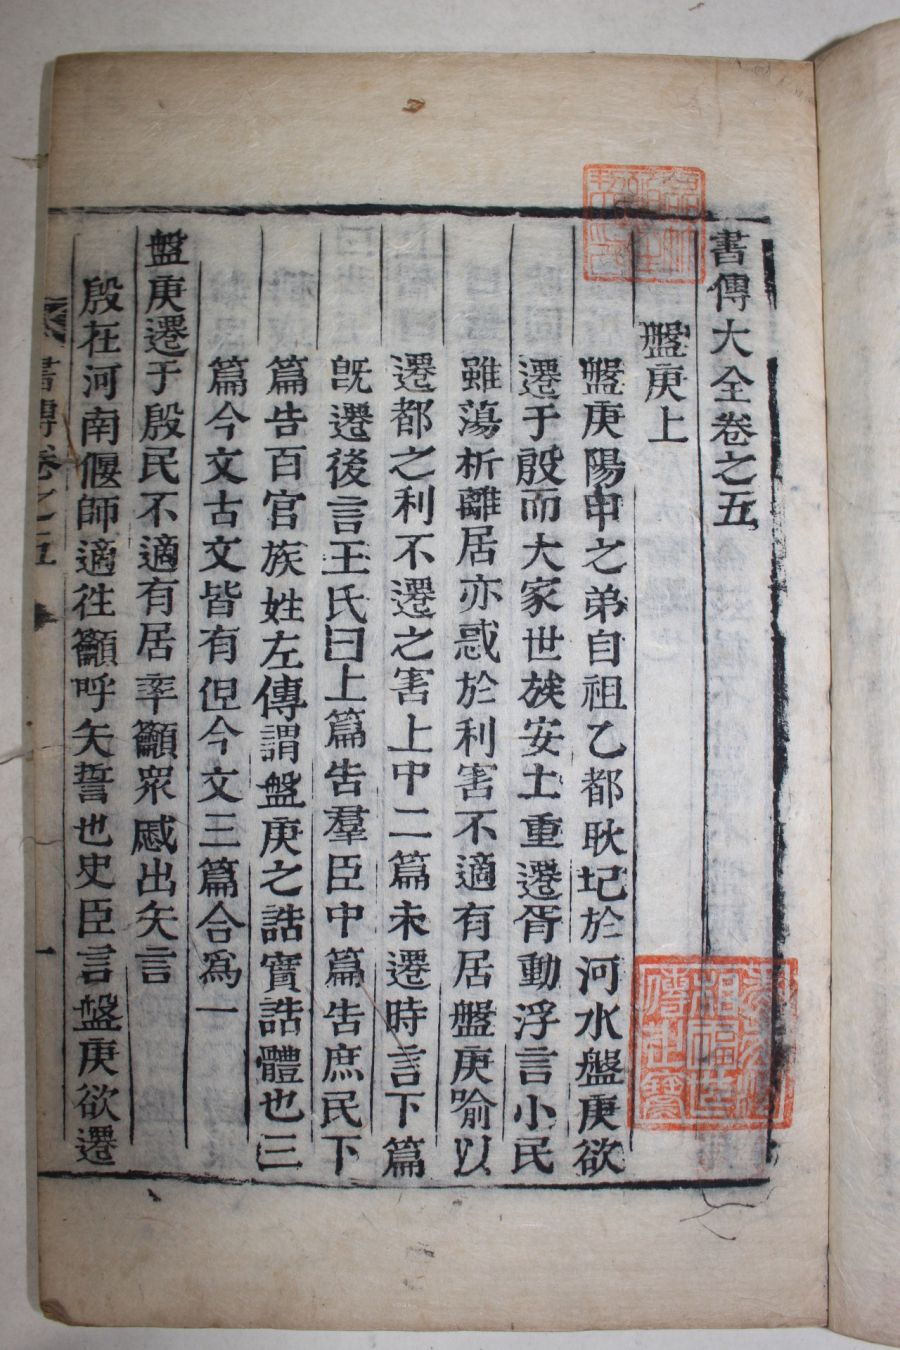 書傳大全卷之五
盤庚上
盤庚陽甲之弟自祖乙都耿圮於河水盤庚欲
遷于殷而大家世族安土重遷胥動浮言小民
雖蕩析離居亦惑於利害不適有居盤庚喻以
遷都之利不遷之害上中二篇未遷時言下篇
旣遷後言王氏曰上篇告羣臣中篇告庶民下
篇告百官族姓左傳謂盤庚之誥實誥體也三
篇今文古文皆有但今文三篇合爲一
盤庚遷于殷民不適有居率籲衆慼出矢言
殷在河南偃師適往籲呼矢誓也史臣言盤庚欲遷
書傳卷之五
一